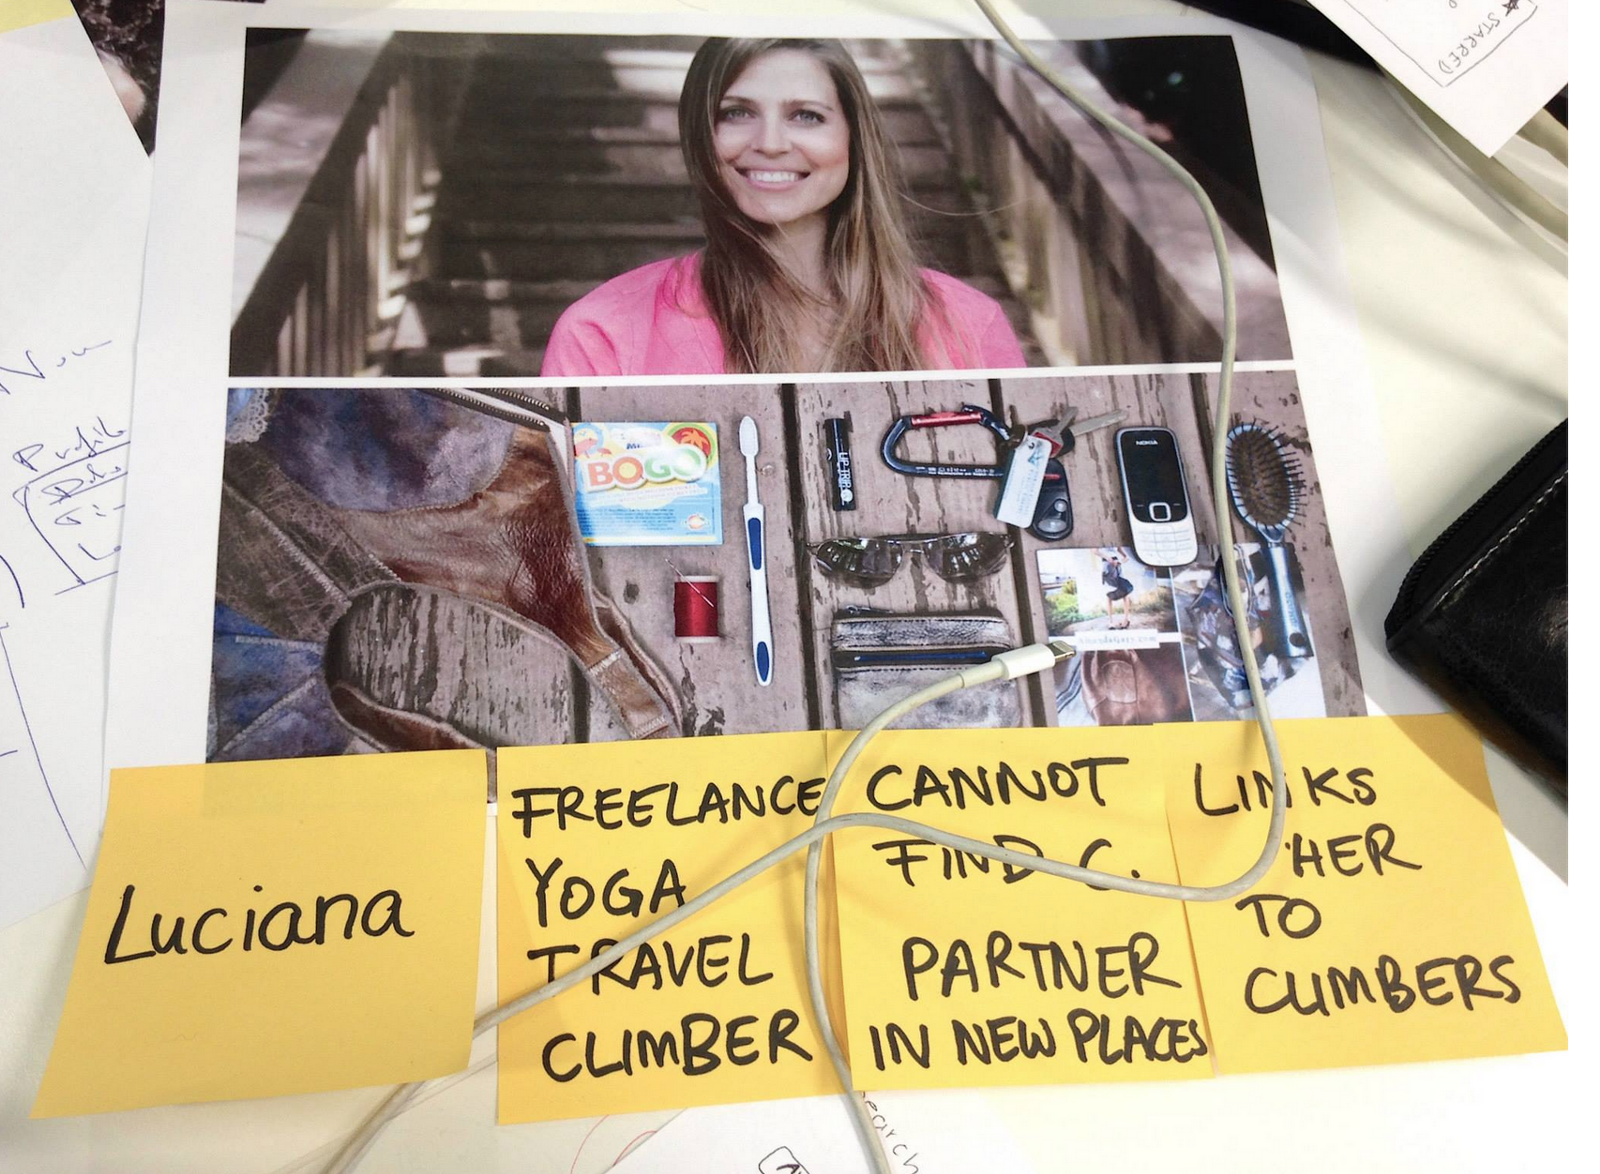 STARRED
Now
Profile
BOGO
NOKIA
Luciana
FREELANCE
YOGA
TRAVEL
CLIMBER
CANNOT
FIND C.
PARTNER
IN NEW PLACES
LINKS
HER
TO
CLIMBERS
earch